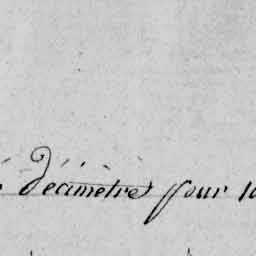 décimètre pour